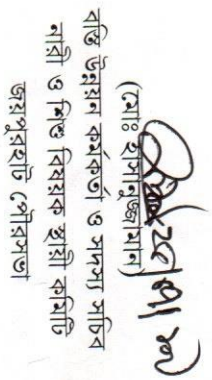 (মোঃ হাসানুজ্জামান)
বস্তি উন্নয়ন কর্মকর্তা ও সদস্য সচিব
নারী ও শিশু বিষয়ক স্থায়ী কমিটি
জয়পুরহাট পৌরসভা